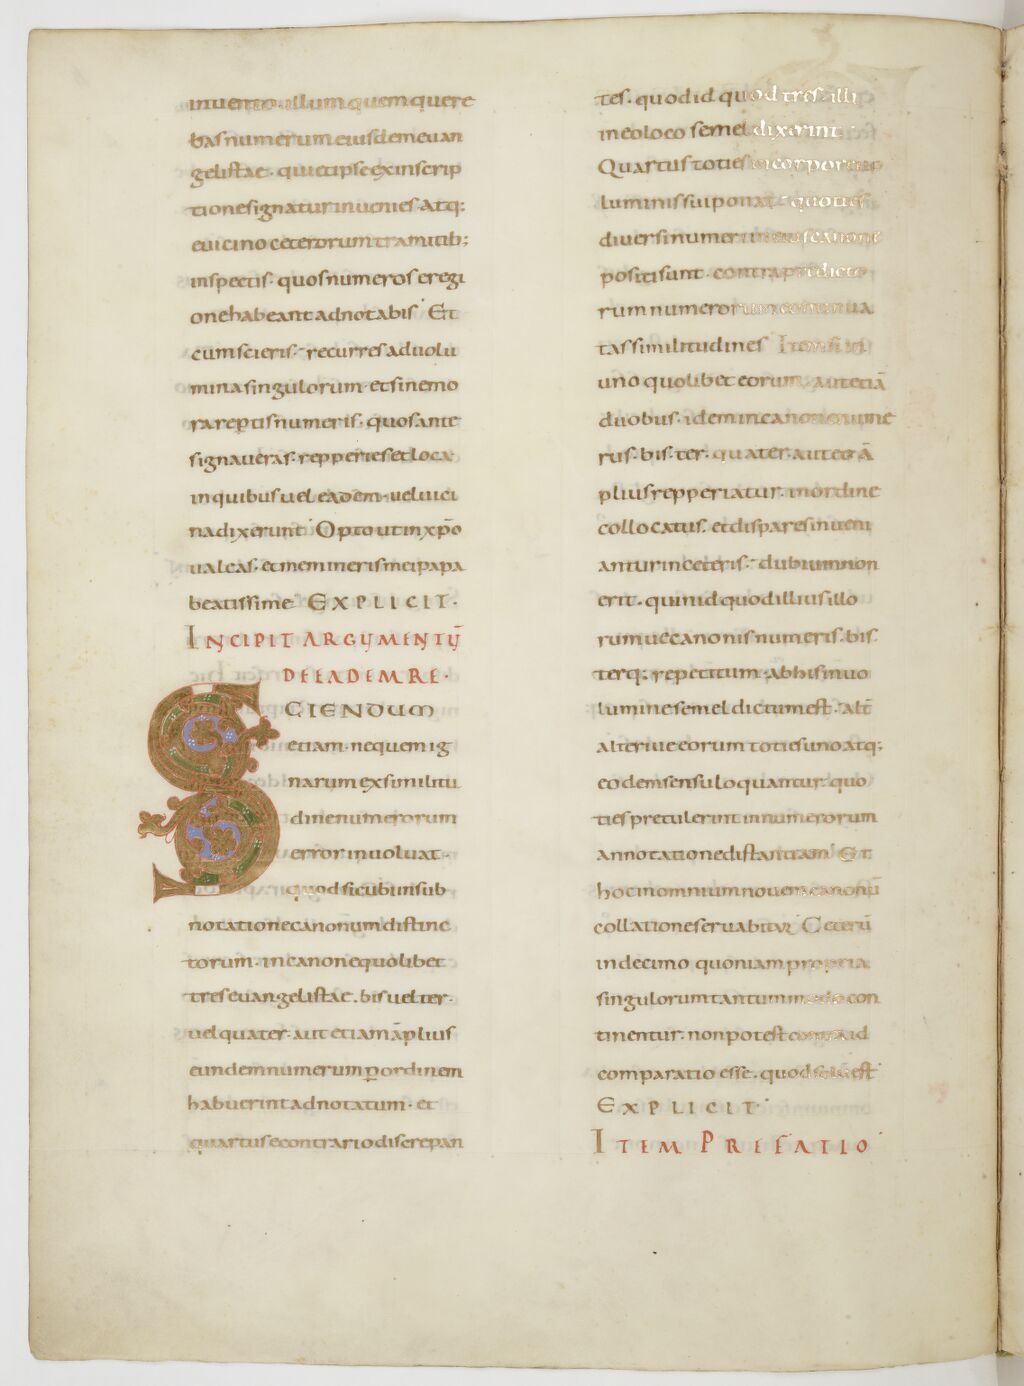 inuento. illum quem quere
bas numerum eiusdem euan
gelistae. qui et ipse ex inscrip
tione signatur inuenies. Atq:
e uicino ceterorum tramitib;
inspectis. quos numeros e regi
one habeant adnotabis. Et
cum scieris. recurres ad uolu
mina singulorum. et sine mo
ra repertis numeris. quos ante
signaueras. repperies et loca
in quibus uel eadem. uel uici
na dixerunt. Opto ut in xp̄o
ualeas. et memineris mei papa
beatissime EXPLICIT.
INCIPIT ARGUMENTŪ
DE EADEM RE.
SCIENDUM
etiam. ne quem ig
narum ex similitu
dine numerorum
error inuoluat.
quod sicubi in sub
notatione canonum distinc
torum. in canone quolibet
tres euangelistae. bis uel ter.
uel quater. aut etiam āplius
eundem numerum p̲ ordinem
habuerint adnotatum. et
quartus e contrario discrepan
tes. quod id quod tres. illi
in eo loco semel dixerint
Quartus toties in corpore uo
luminis sui ponat. quoties
diuersi numeri in eius canone
positi sunt. contra predicto
rum numerorum continua
tas similitudines Item si in
uno quolibet eorum, aut etiā
duobus. idem in canone nume
rus. bis. ter. quater. aut eo ā
plius reppperiatur. in ordine
collocatus. et dispares inueni
antur in ceteris. dubium non
erit. quin id quod illius illo
rumue canonis numeris. bis
terq: repetitum. ab his in uo
lumine semel dictum est. alt̄
alteriue eorum toties uno atq:
eodem sensu loquantur. quo
ties pretulerint in numerorum
annotatione distantiam. Et
hoc in omnium nouem canonū
collatione seruabitur. Ceterū
in decimo quoniam propria
singulorum tantummodo con
tinentur. non potest contra id
comparatio esse. quod solū est.
EXPLICIT.
ITEM PREFATIO